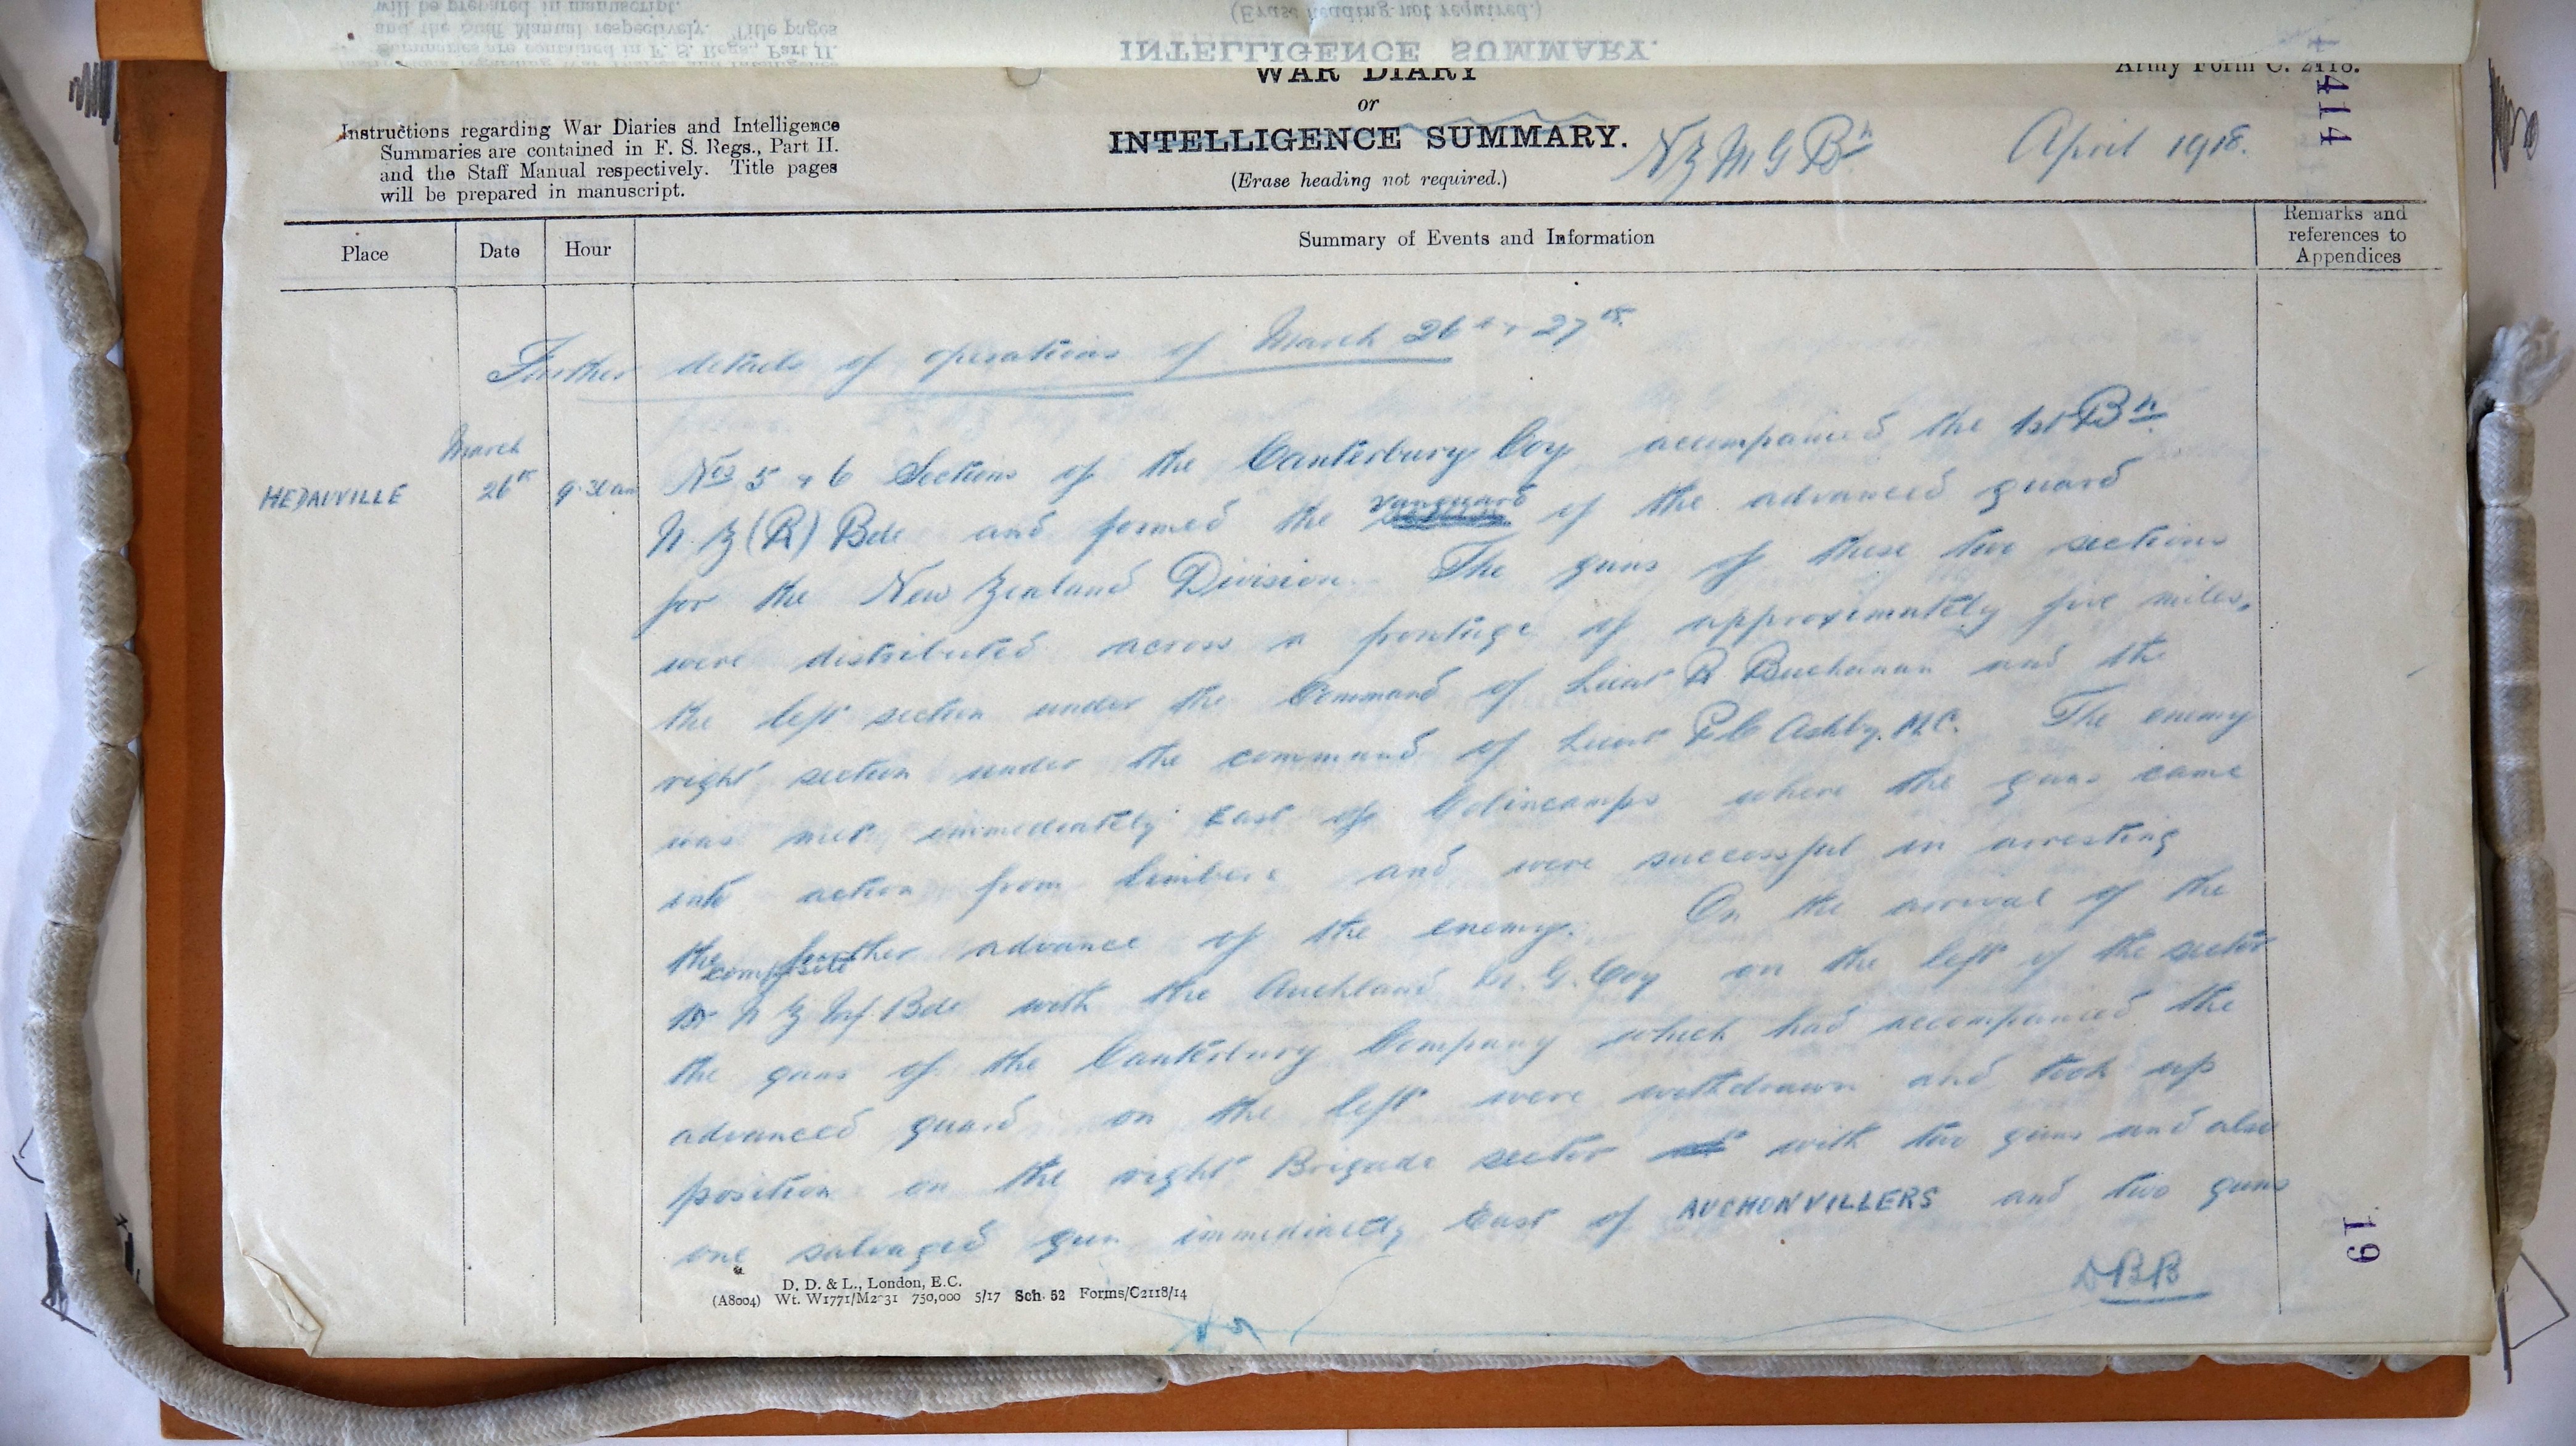 WAR DIARY
Army Form C. 2118.
or
INTELLIGENCE SUMMARY.
(Erase heading not required.)
Instructions regarding War Diaries and Intelligence
Summaries are contained in F. S. Regs., Part II.
and the Staff Manual respectively. Title pages
will be prepared in manuscript.
N Z M G Bn
April 1918.
414
Place
Date
Hour
Summary of Events and Information
Remarks and
references to
Appendices
Further details of operations of March 26th & 27th.
March
HEDAUVILLE 26th 9.30 am Nos 5 & 6 Sections of the Canterbury Coy accompanied the 1st Bn
N.Z (R) Bde and formed the vanguard of the advanced guard
for the New Zealand Division. The guns of these two sections
were distributed across a frontage of approximately five miles,
the left section under the Command of Lieut R Buchanan and the
right section under the command of Lieut P C Ashby. M.C. The enemy
was met immediately East of Colincamps where the guns came
into action from limbers and were successful in arresting
the further advance of the enemy. On the arrival of the
composite
1st N Z Inf. Bde with the Auckland M. G. Coy on the left of the sector
the guns of the Canterbury Company which had accompanied the
advanced guard on the left were withdrawn and took up
position on the right Brigade sector with two guns and also
one salvaged gun immediately East of AUCHONVILLERS and two guns
DBB
19
D. D. & L., London, E.C.
(A8004) Wt. W1771/M2031 750,000 5/17 Sch. 52 Forms/C2118/14